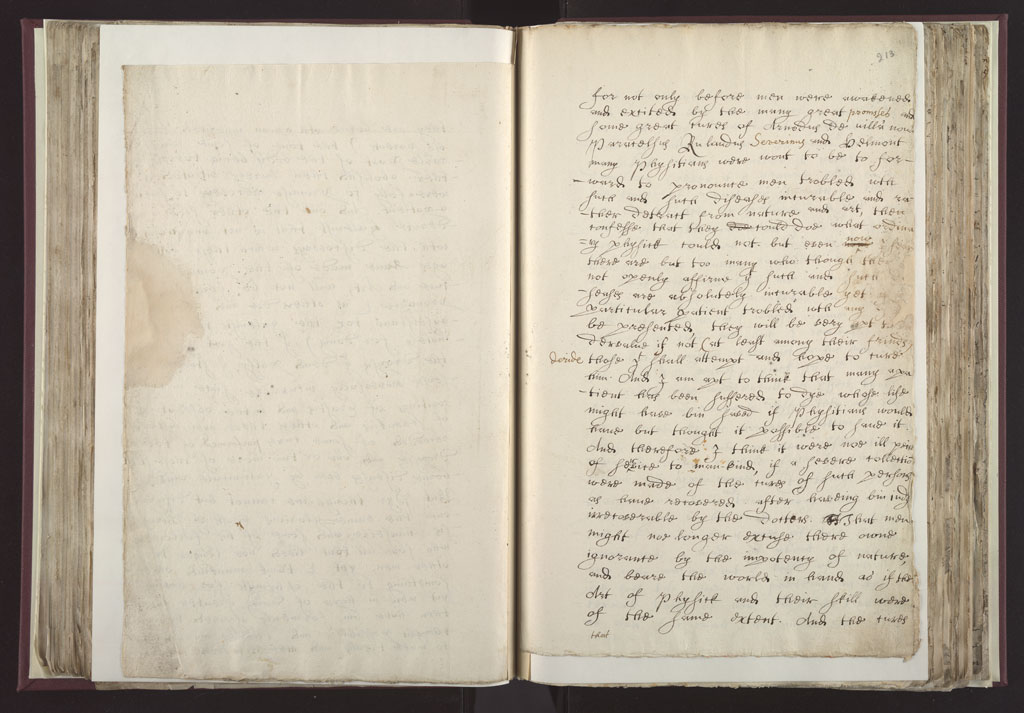 218
for not only before men were awakened
and excited by the many great promises and
some great cures of Arnoldus de villa nova
Paracelsus Rulandus Severinus and Helmont
many Physitians were wont to be so for-
-ward to pronounce men trobled with
such and such diseases incurable and ra
ther detract from nature and art, then
confesse that they could doe what ordina
=ry physick could not. but even now
there are but too many who though they
not openly affirme yt such and such
=seases are absolutely incurable yet
particular patient trobled with any
be presented they will be very apt to
dervalue if not (at least among their friends
deride
those yt shall attempt and hope to cure
him. And I am apt to think that many a pa
-tient has been suffered to dye whose life
might have bin saved if Physitians would
have but thought it possible to save it.
And therefore I think it were noe ill piece
of service to man-kind, if a severe collection
were made of the cures of such persons
as have recovered after haveing bin
irrecoverable by the Docters. That men
might noe longer excuse there owne
ignorance by the impotency of nature,
and beare the world in hand as if the
Art of Physick and their skill were
of the same extent. And the cures
that